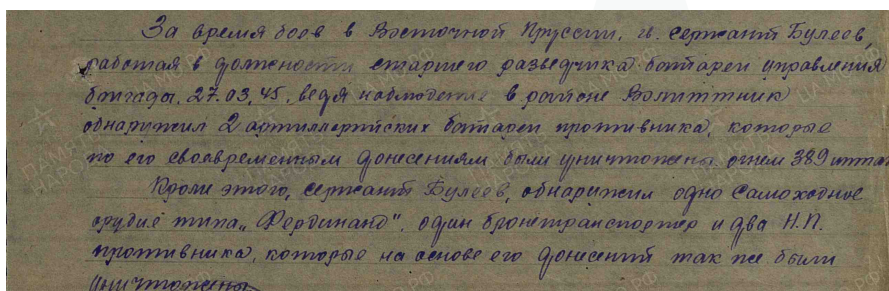 За время боев в Восточной Пруссии, гв. сержант Булеев,
работая в должности старшего разведчика батареи управления
бригады, 27.03.45, ведя наблюдение в районе
обнаружил 2 артиллерийских батареи противника, которые
по его своевременным донесениям были уничтожены огнем 389
Кроме этого, сержант Булеев, обнаружил одно самоходное
орудие типа „Фердинанд", один бронетранспортер и два Н.П.
противника, которые на основе его донесений так же были
уничтожены